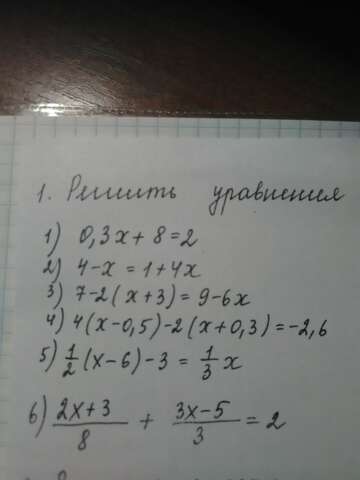 1. Решить уравнения
1) 0,3x + 8 = 2
2) 4 - x = 1 + 4x
3) 7 - 2(x + 3) = 9 - 6x
4) 4(x - 0,5) - 2(x + 0,3) = -2,6
5) 1/2 (x - 6) - 3 = 1/3 x
6) (2x + 3)/8 + (3x - 5)/3 = 2